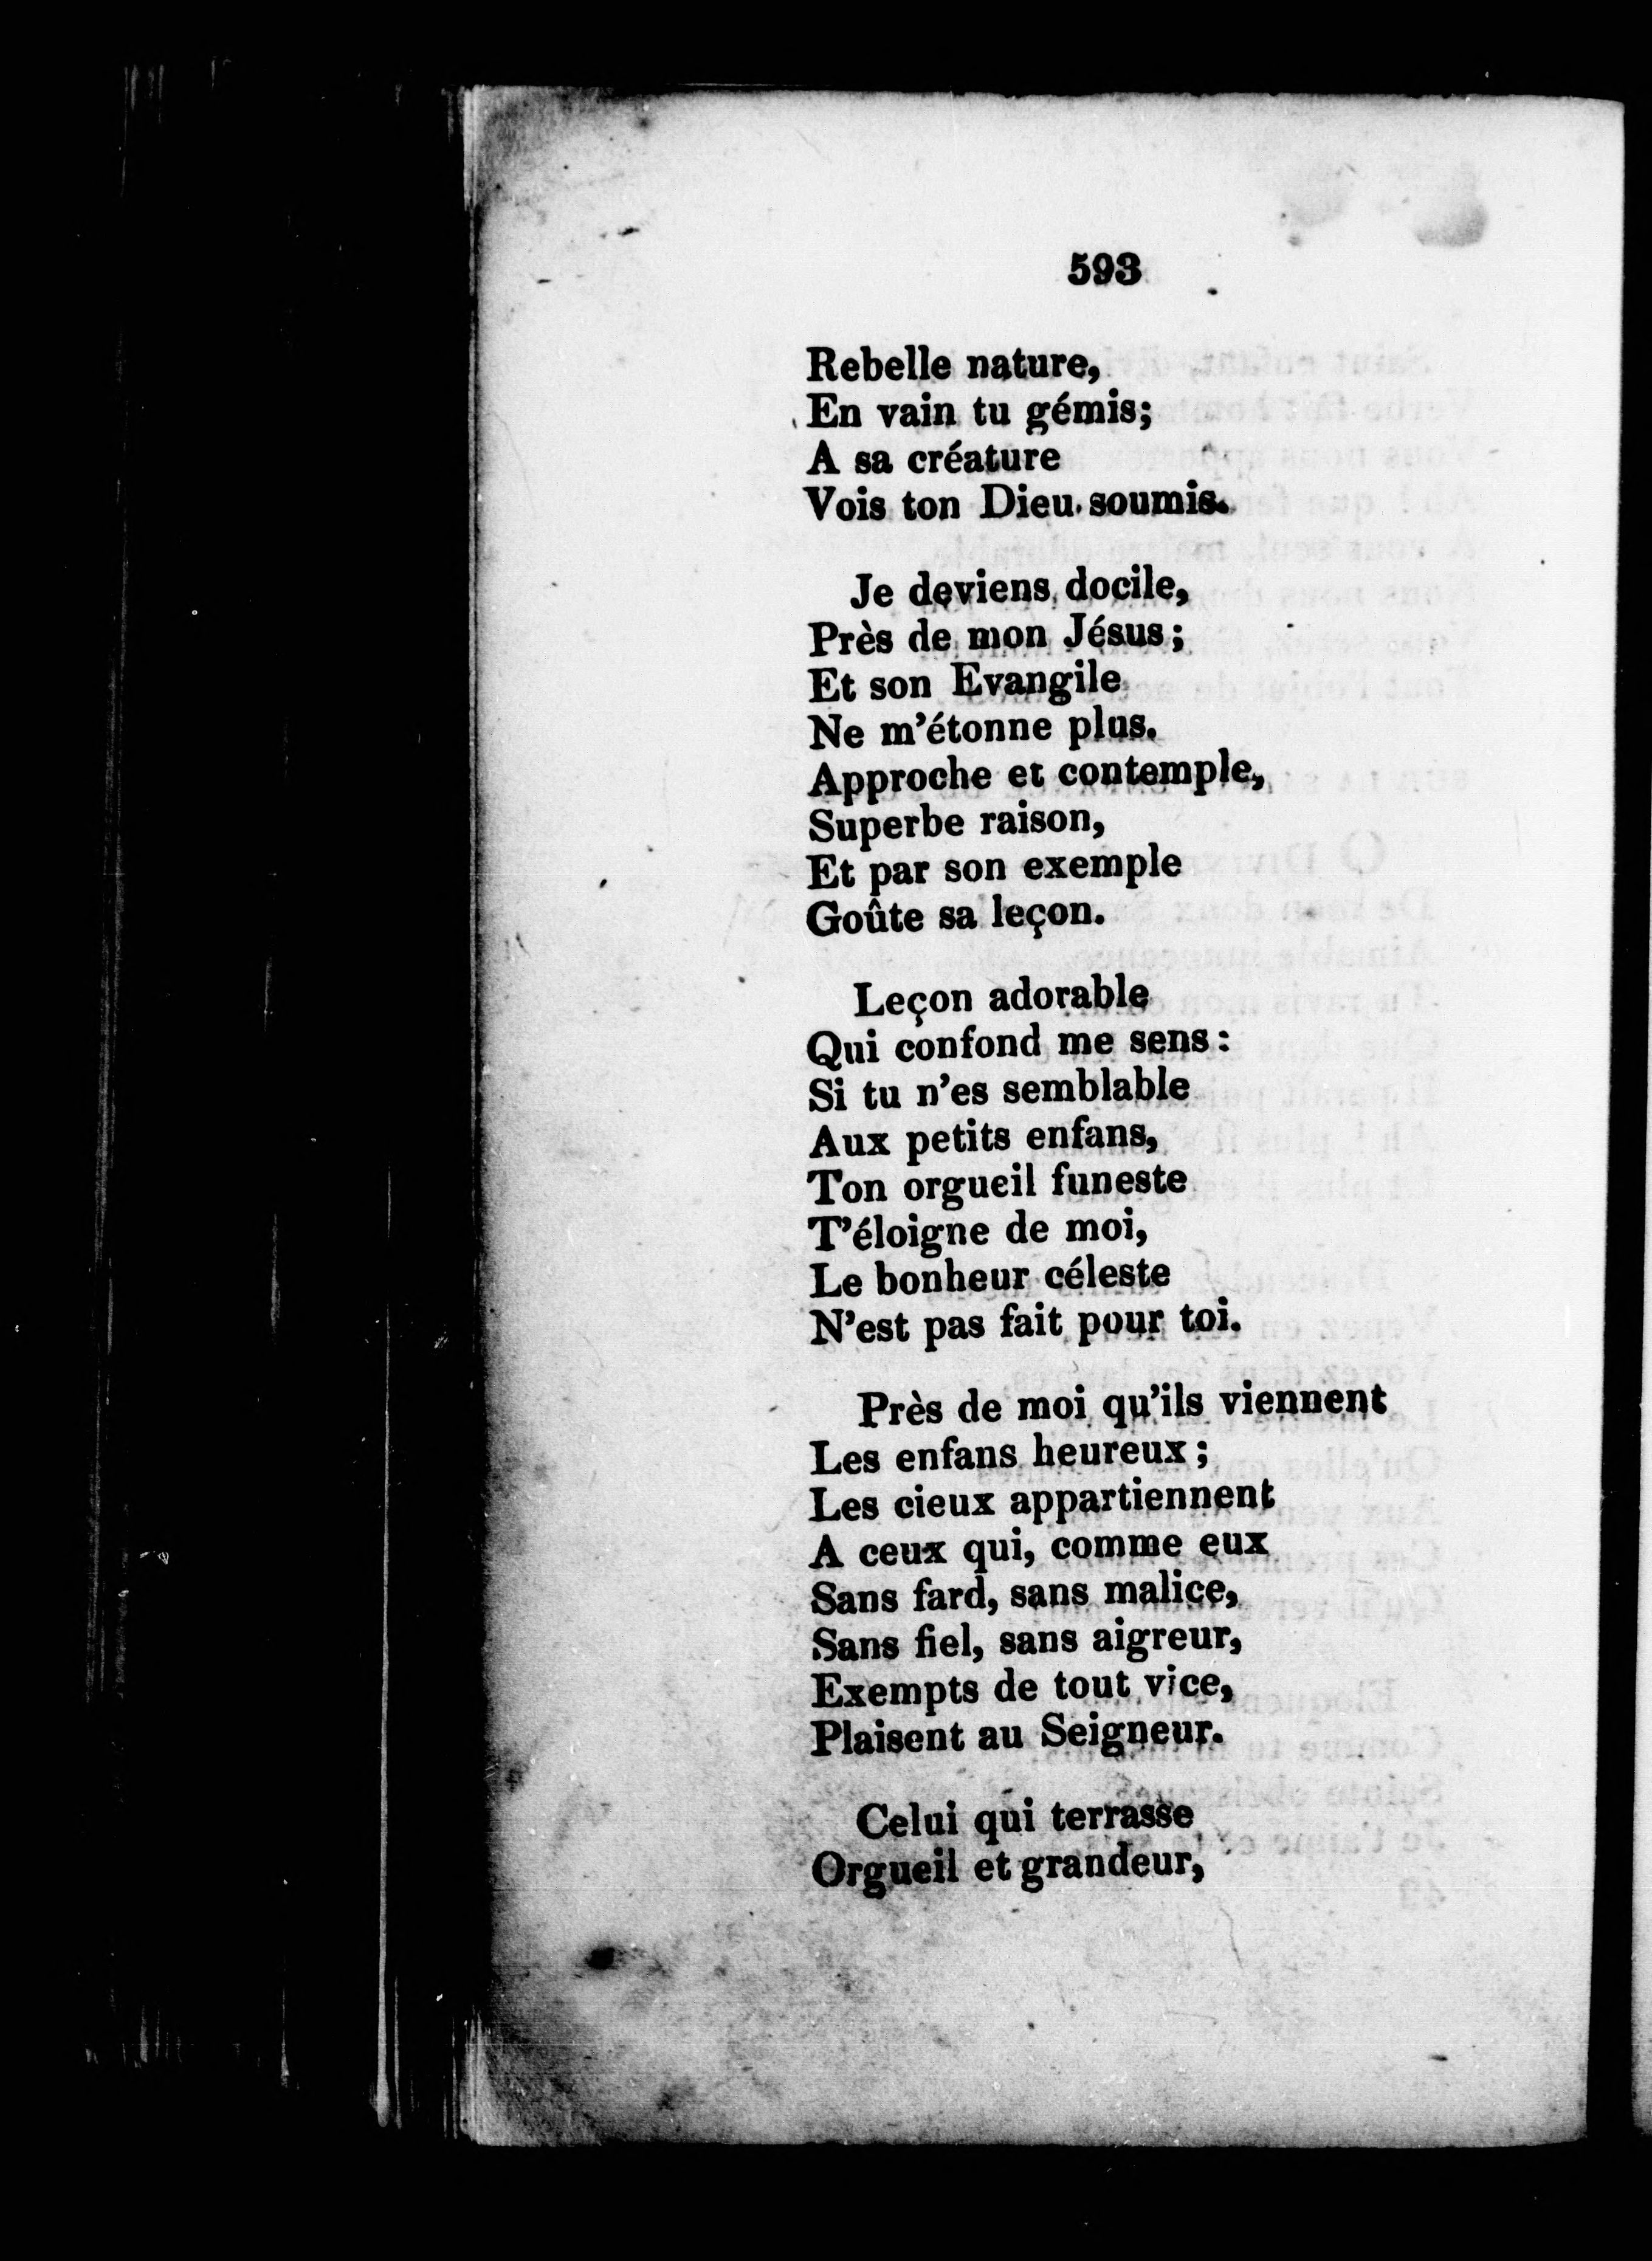 593
Rebelle nature,
En vain tu gémis;
A sa créature
Vois ton Dieu soumis.
Je deviens docile,
Près de mon Jésus;
Et son Evangile
Ne m'étonne plus.
Approche et contemple,
Superbe raison,
Et par son exemple
Goûte sa leçon.
Leçon adorable
Qui confond me sens:
Si tu n'es semblable
Aux petits enfans,
Ton orgueil funeste
T'éloigne de moi,
Le bonheur céleste
N'est pas fait pour toi.
Près de moi qu'ils viennent
Les enfans heureux;
Les cieux appartiennent
A ceux qui, comme eux
Sans fard, sans malice,
Sans fiel, sans aigreur,
Exempts de tout vice,
Plaisent au Seigneur.
Celui qui terrasse
Orgueil et grandeur,